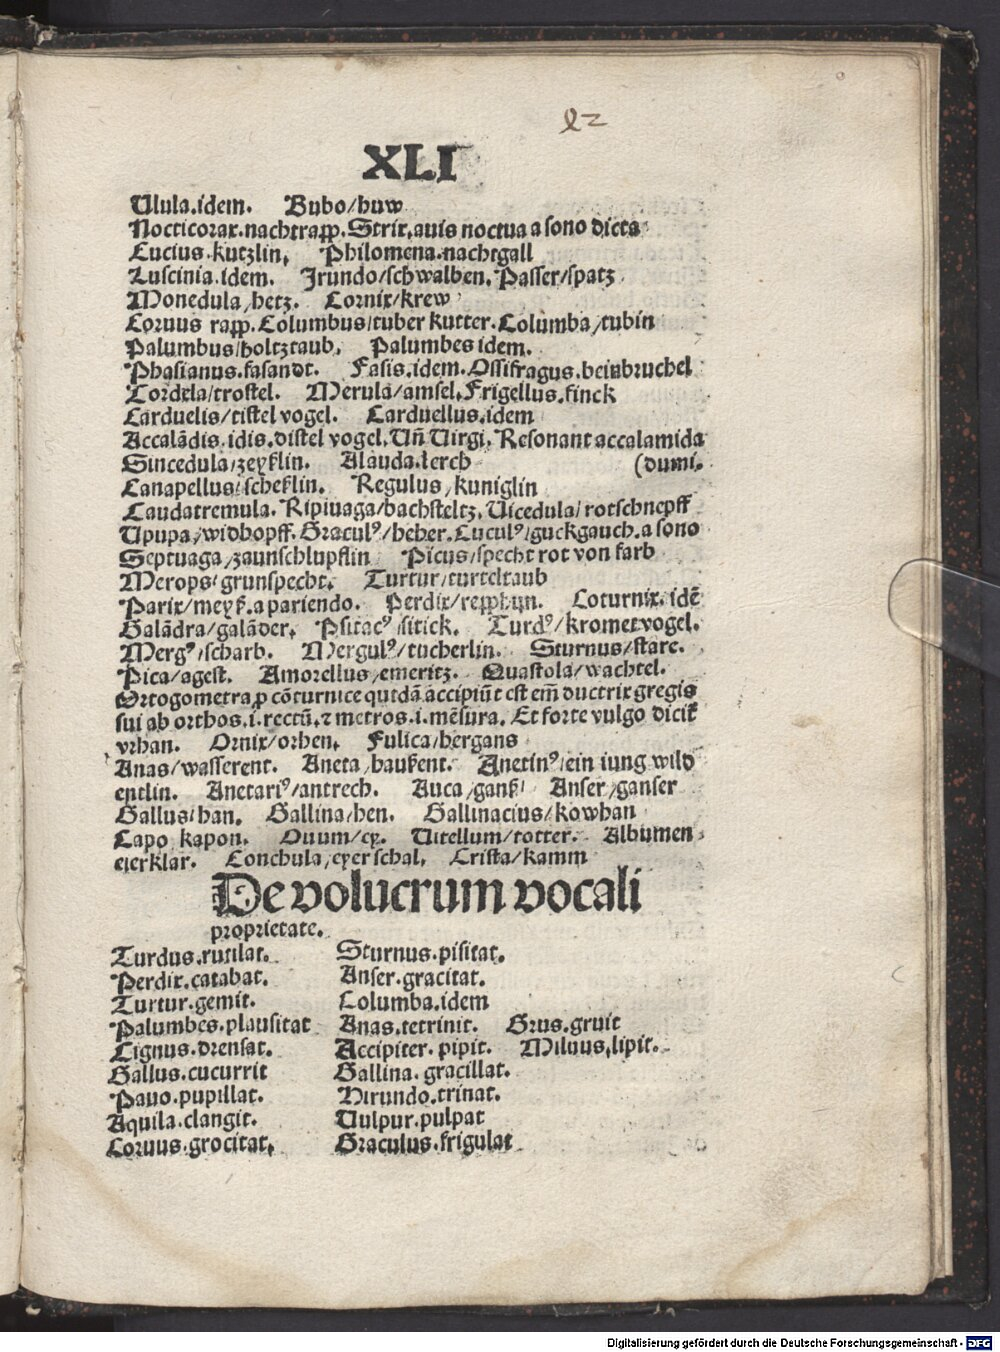 42
XLI
Ulula.idem. Bubo/huw
Nocticorax.nachtrapp.Strix,auis noctua a sono dicta
Lucius.kutzlin. Philomena.nachtgall
Luscinia.idem. Irundo/schwalben.Passer/spatz
Monedula/hetz. Cornix/krew
Coruus rapp.Columbus/tuber kutter.Columba/tubin
Palumbus/holtztaub. Palumbes idem.
Phasianus.fasandt. Fasis.idem.Ossifragus.beinbruchel
Tordela/trostel. Merula/amsel.Frigellus.finck
Carduelis/tistel vogel. Carduellus.idem
Accalādis.idis.distel vogel.Uñ Uirgi.Resonant accalamida
Sincedula/zeyßlin. Alauda.lerch (dumi.
Canapellus/scheßlin. Regulus/kuniglin
Caudatremula.Ripiuaga/bachsteltz.Uicedula/rotschnepff
Upupa/widhopff.Graculꝰ/heher.Cuculꝰ/guckgauch.a sono
Septuaga/zaunschlupflin Picus/specht rot von farb
Merops/grunspecht. Turtur/turteltaub
Parix/meyß.a pariendo. Perdix/repphun. Coturnix.idē
Galādra/galāder. Psitacꝰ/sitick. Turdꝰ/krometvogel.
Mergꝰ/scharb. Mergulꝰ/tucherlin. Sturnus/stare.
Pica/agest. Amorellus/emeritz. Quastola/wachtel.
Ortogometra ꝓ cōturnice quidā accipiūt est em̄ ductrix gregis
sui ab orthos.i.rectū.⁊ metros.i.mēsura. Et forte vulgo dicit̃
vrhan. Ornix/orhen. Fulica/hergans
Anas/wasserent. Aneta/haußent. Anetinꝰ/ein iung wild
entlin. Anetariꝰ/antrech. Auca/ganß Anser/ganser
Gallus/han. Gallina/hen. Gallinacius/kowhan
Capo kapon. Ouum/ey. Uitellum/totter. Albumen
eierklar. Conchula/eyer schal. Crista/kamm
De volucrum vocali
proprietate.
Turdus.rutilat. Sturnus.pisitat.
Perdix.catabat. Anser.gracitat.
Turtur.gemit. Columba.idem
Palumbes.plausitat Anas.tetrinit. Grus.gruit
Cignus.drensat. Accipiter.pipit. Miluus.lipit.
Gallus.cucurrit Gallina.gracillat.
Pauo.pupillat. Hirundo.trinat.
Aquila.clangit. Uulpur.pulpat
Coruus.grocitat. Graculus.frigulat
Digitalisierung gefördert durch die Deutsche Forschungsgemeinschaft - DFG